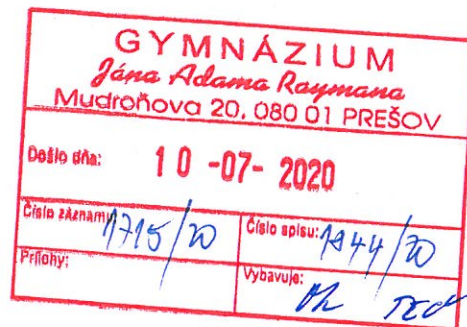 GYMNÁZIUM
Jána Adama Raymana
Mudroňova 20, 080 01 PREŠOV
Došlo dňa: 10 -07- 2020
Číslo záznamu: 1715/20 Číslo spisu: 1944/20
Prílohy: Vybavuje: